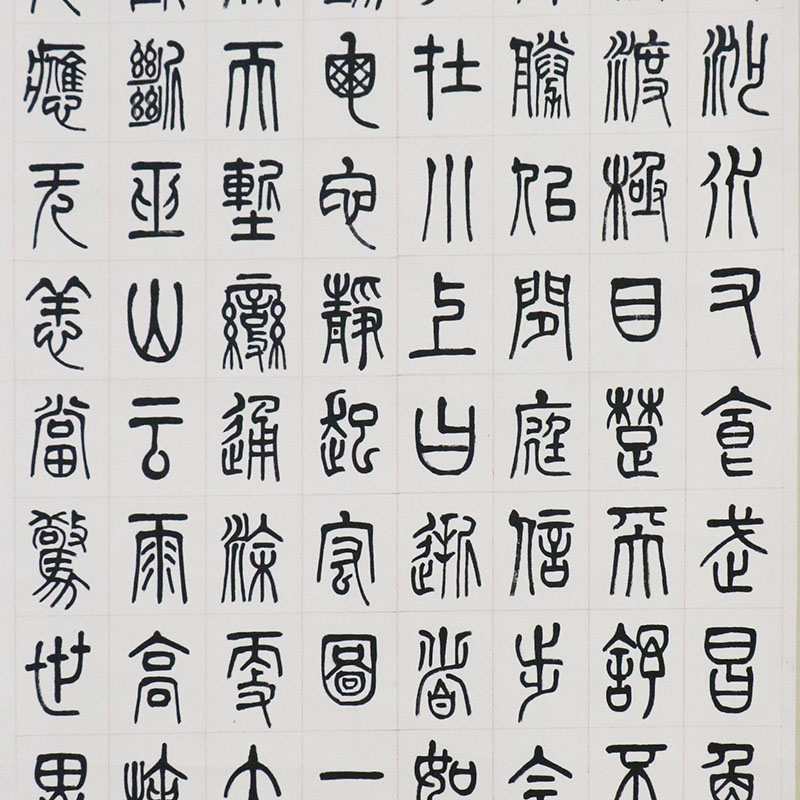 沙水又食武昌魚
渡極目楚天舒不
勝似閒庭信步今
在川上曰逝者如
龜它靜起宏圖一
天塹變通涂更立
斷巫山云雨高峽
應无恙當驚世界